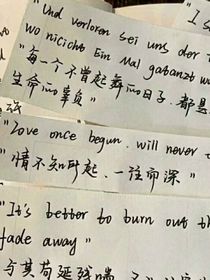 "I s
"Und verloren sei uns der t
wo nicicht Ein Mal gatanzt w
"每一个不曾起舞的日子，都是
生命的辜负"
"Love once begun. will never
"情不知所起，一往而深"
"It's better to burn out th
fade away"
与其苟延残喘，不